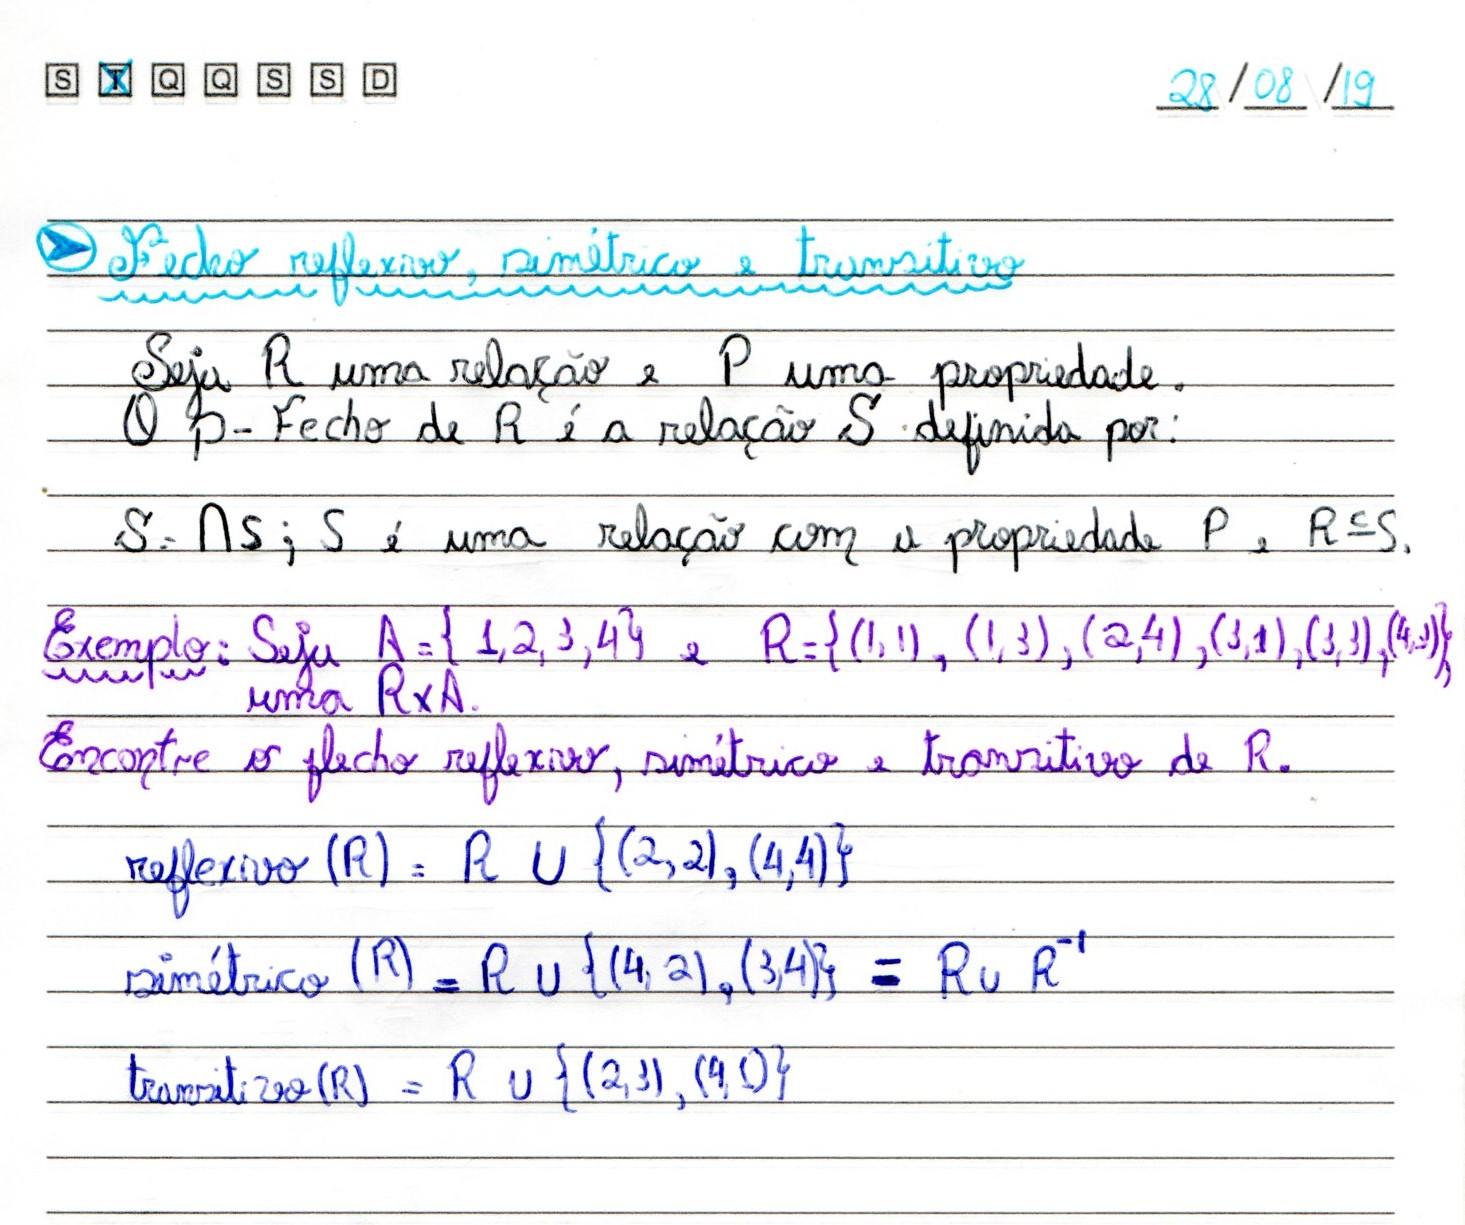 S T Q Q S S D 28/08/19
Fecho reflexivo, simétrico e transitivo
Seja R uma relação e P uma propriedade.
O p-Fecho de R é a relação S definida por:
S = ∩S; S é uma relação com a propriedade P e R⊆S.
Exemplo: Seja A={1,2,3,4} e R={(1,1), (1,3), (2,4), (3,1), (3,3), (4,3)},
uma RxA.
Encontre o flecho reflexivo, simétrico e transitivo de R.
reflexivo (R) = R ∪ {(2,2), (4,4)}
simétrico (R) = R ∪ {(4,2), (3,4)} = R ∪ R⁻¹
transitivo (R) = R ∪ {(2,3), (4,1)}